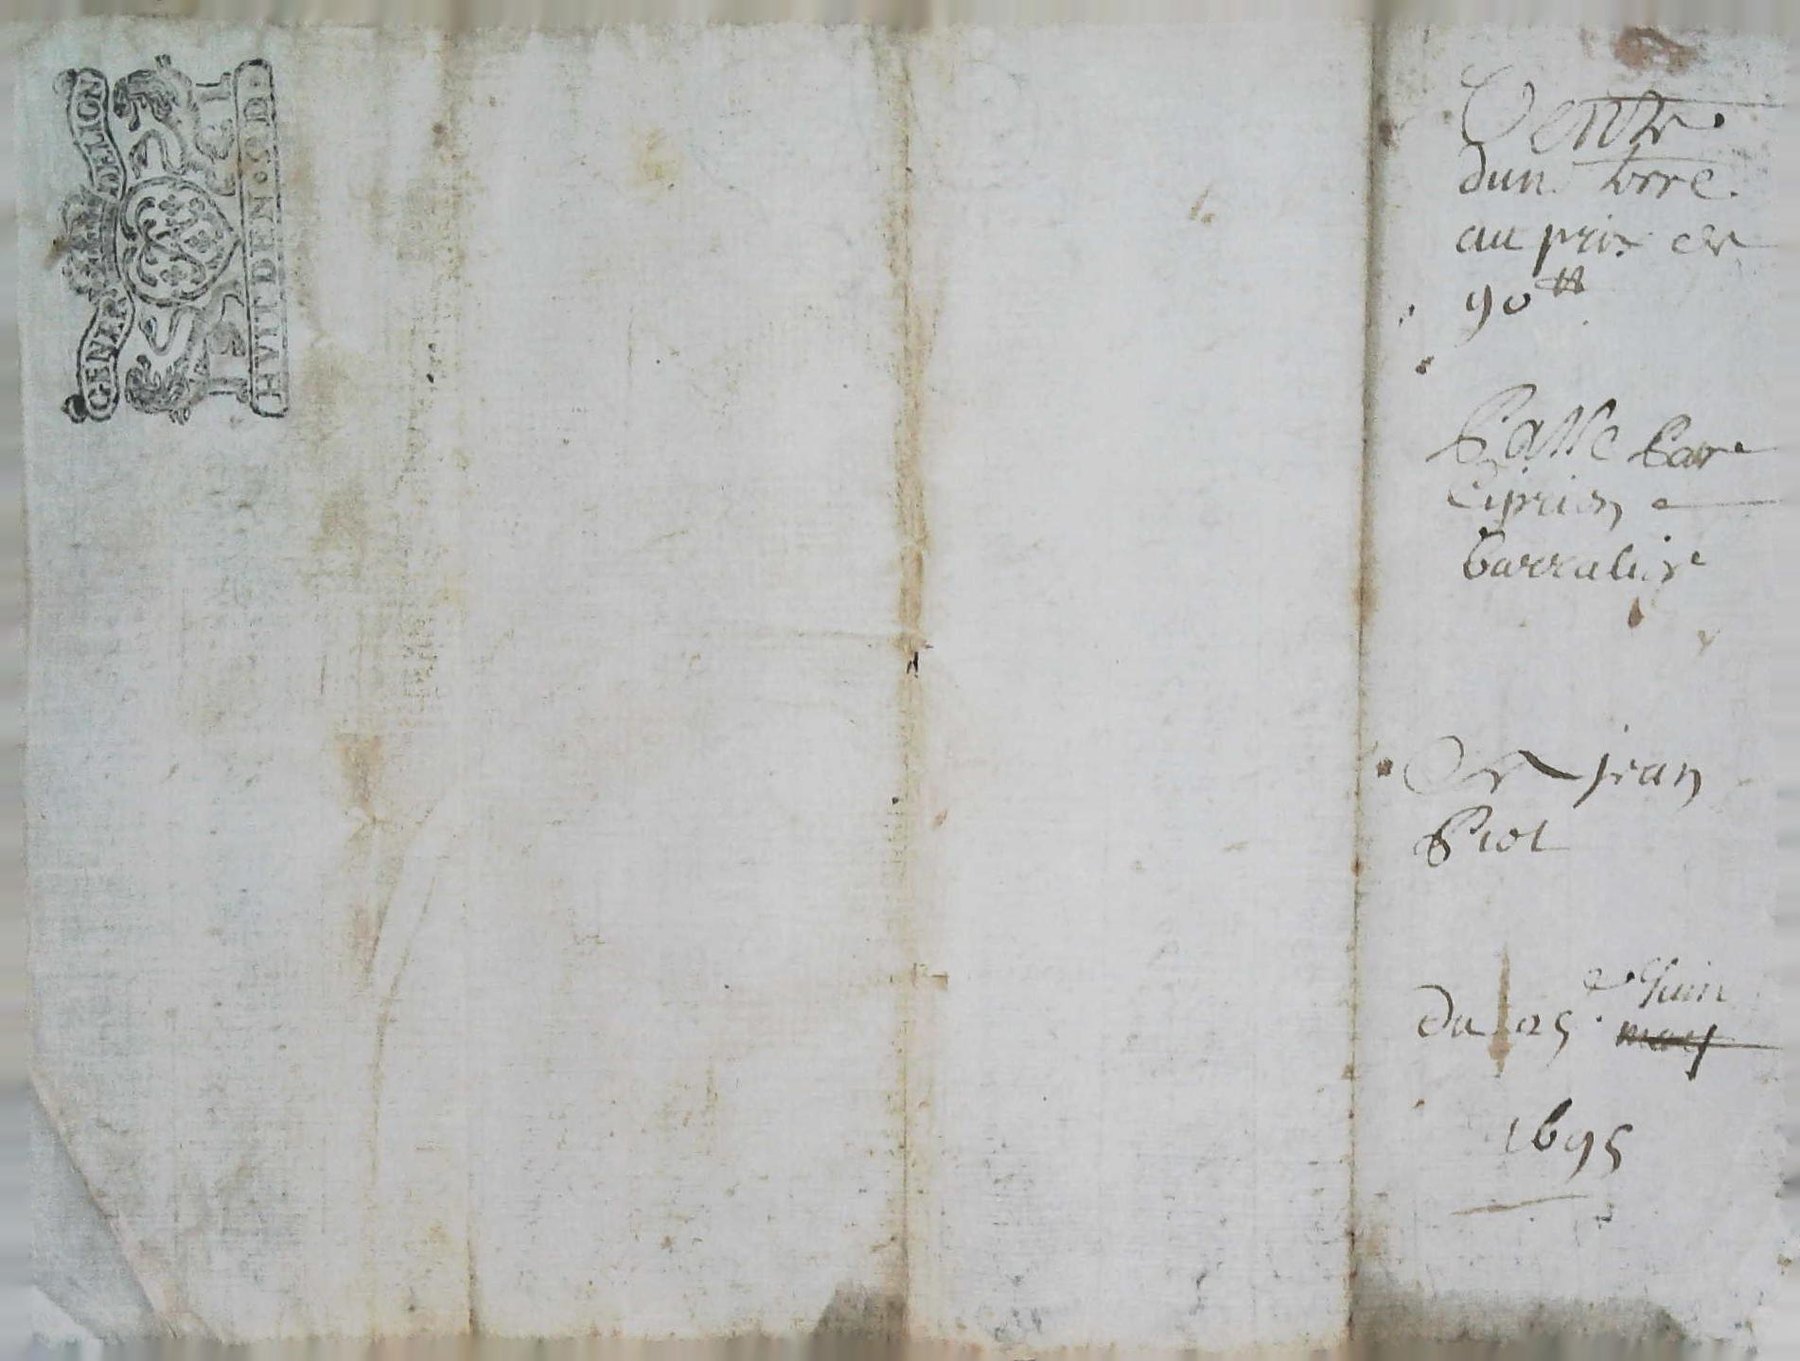 GENER DELION
HVIT DEN • S D •
Vente
dun terre
au prix de
90 ₶
Passe Par
Ciprien
barralier
De jean
Prot
du 25 Juin
may
1695